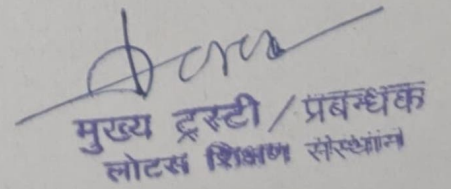 मुख्य ट्रस्टी / प्रबन्धक
लोटस शिक्षण संस्थान